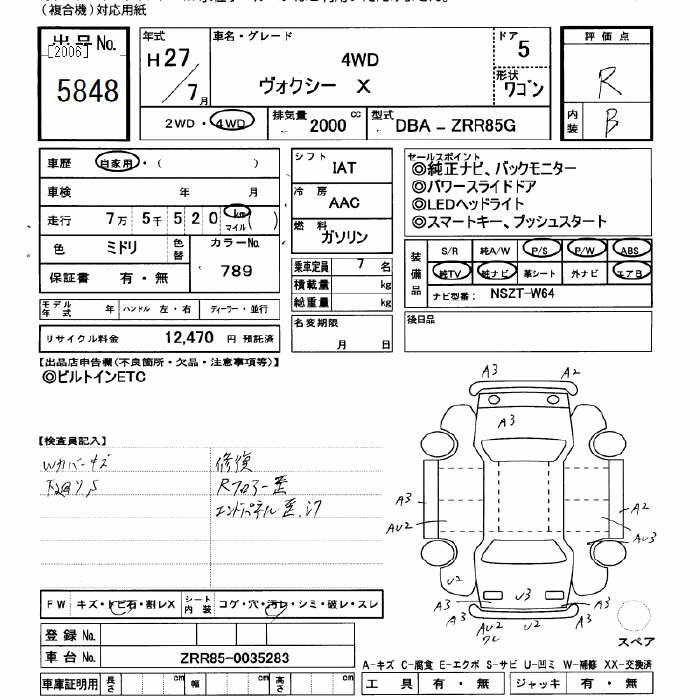 （複合機）対応用紙
出品No.
[2006]
5848
年式
H27／7月
車名・グレード
4WD
ヴォクシー X
ドア
5
形状
ワゴン
評価点
R
内装
B
2WD・4WD
排気量 2000 cc
型式 DBA－ZRR85G
車歴 自家用・( )
車検 年 月
走行 7万 5千 5 2 0 km マイル ( )
色 ミドリ 色替
カラーNo. 789
保証書 有・無
モデル年式 年 ハンドル 左・右 ディーラー・並行
リサイクル料金 12,470 円 預託済
シフト IAT
冷房 AAC
燃料 ガソリン
乗車定員 7 名
積載量 kg
総重量 kg
名変期限
月 日
セールスポイント
◎純正ナビ、バックモニター
◎パワースライドドア
◎LEDヘッドライト
◎スマートキー、プッシュスタート
装備品
S/R 純A/W P/S P/W ABS
純TV 純ナビ 革シート 外ナビ エアB
ナビ型番: NSZT-W64
後日品
【出品店申告欄(不良箇所・欠品・注意事項等)】
◎ビルトインETC
【検査員記入】
Wカバーキズ
修復
Rフロアー歪
エンドパネル歪、
FW キズ・トビ石・割レX
シート内装 コゲ・穴・汚レ・シミ・破レ・スレ
登録No.
車台No. ZRR85-0035283
車庫証明用 長さ cm 幅 cm 高さ cm
A3 A2
A3
A3 A2
AU2 AU3
U2
A3 U3 A3
A3 AU2 U2 A3
スペア
A-キズ C-腐食 E-エクボ S-サビ U-凹ミ W-補修 XX-交換済
工具 有・無 ジャッキ 有・無